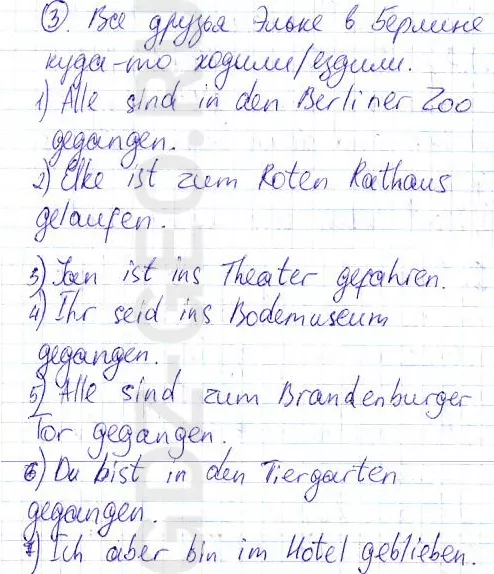 ③. Все друзья Эльке в Берлине
куда-то ходили/ездили.
1) Alle sind in den Berliner Zoo
gegangen.
2) Elke ist zum Roten Rathaus
gelaufen.
3) Jan ist ins Theater gefahren.
4) Ihr seid ins Bodemuseum
gegangen.
5) Alle sind zum Brandenburger
Tor gegangen.
6) Du bist in den Tiergarten
gegangen.
7) Ich aber bin im Hotel geblieben.
GDZ-GEO.RU